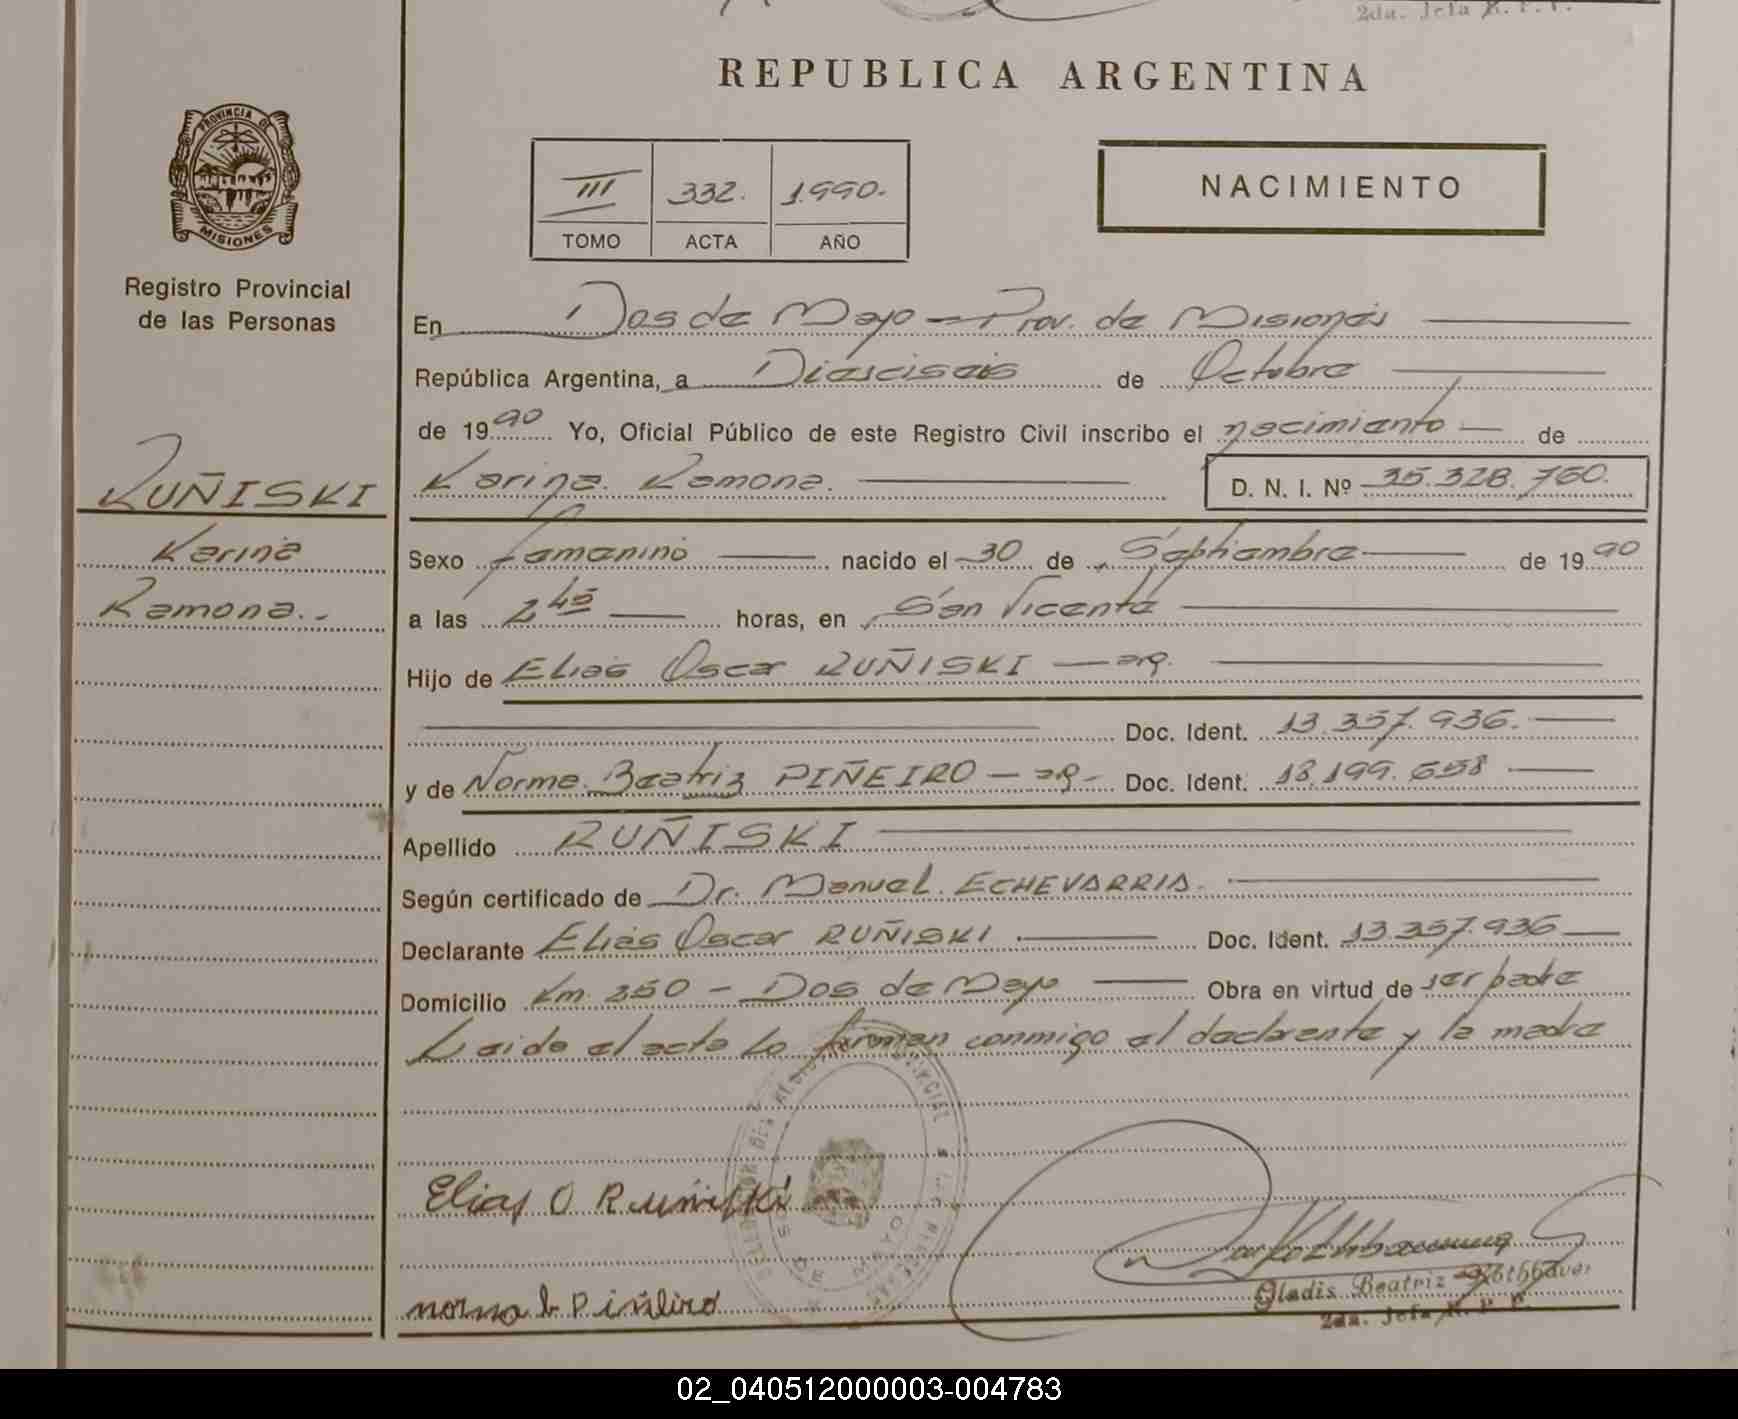 2da. Jefa R. P. P.
REPUBLICA ARGENTINA
PROVINCIA DE
MISIONES
III 332. 1.990.
TOMO ACTA AÑO
NACIMIENTO
Registro Provincial
de las Personas
En Dos de Mayo - Prov. de Misiones
República Argentina, a Dieciseis de Octubre
de 1990 Yo, Oficial Público de este Registro Civil inscribo el nacimiento de
RUÑISKI
Karina Ramona. D. N. I. Nº 35.328.760.
Karina
Sexo femenino nacido el 30 de Septiembre de 1990
Ramona.-
a las 2 45 horas, en San Vicente
Hijo de Elias Oscar RUÑISKI - arg.
Doc. Ident. 13.357.936.
y de Norma Beatriz PIÑEIRO - arg - Doc. Ident. 18.199.658
Apellido RUÑISKI
Según certificado de Dr. Manuel ECHEVARRIA.
Declarante Elias Oscar RUÑISKI Doc. Ident. 13.357.936
Domicilio Km. 250 - Dos de Mayo Obra en virtud de ser padre
Leida el acta lo firman conmigo el declarante y la madre
Elias O Ruñiski
norma b Piñeiro
Gladis Beatriz
2da. Jefa R. P. P.
02_040512000003-004783